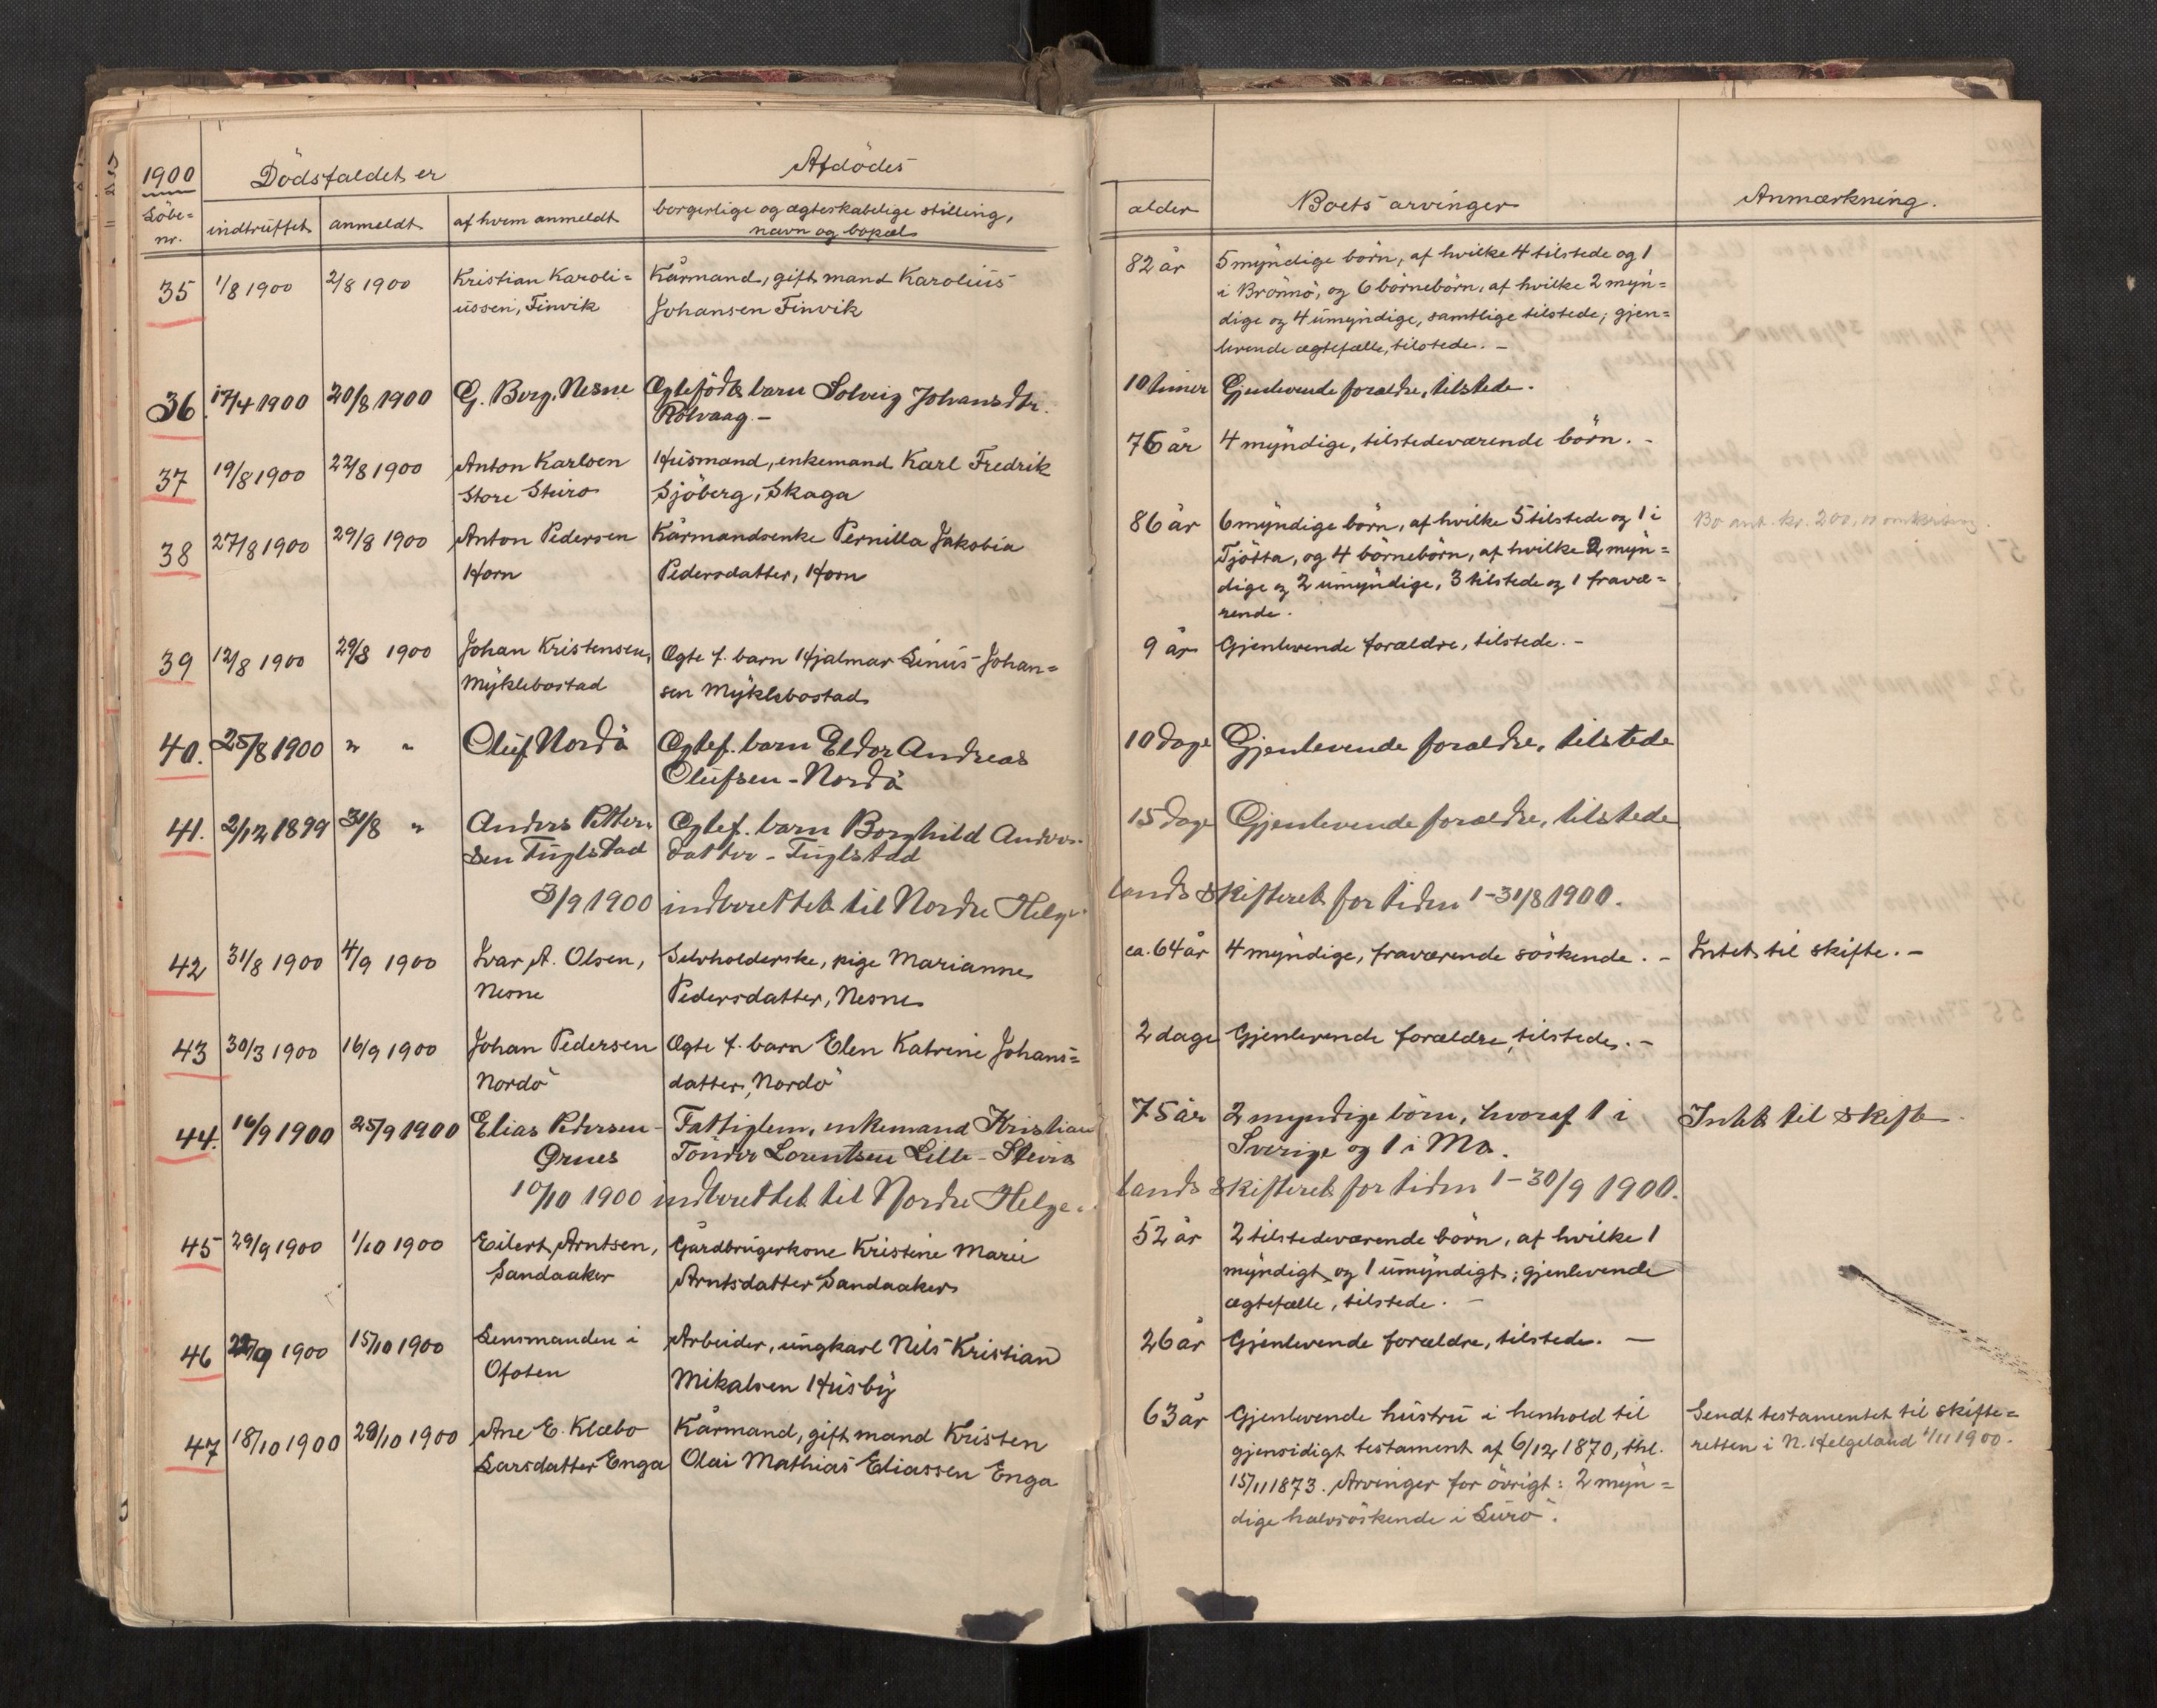 1900
Dödsfaldet er
Afdödes
Löbe=
nr.
indtruffet
anmeldt
af hvem anmeldt
borgerlige og ægteskabelige stilling,
navn og bopæl
alder
Boets arvinger
Anmærkning.
35 1/8 1900 2/8 1900 Kristian Karoli= Kårmand, gift mand Karolius
ussen, Finvik Johansen Finvik
82 år 5 myndige börn, af hvilke 4 tilstede og 1
i Brönnö, og 6 börnebörn, af hvilke 2 myn=
dige og 4 umyndige, samtlige tilstede; gjen=
levende ægtefælle, tilstede. –
36 17/4 1900 20/8 1900 G. Berg, Nesne Ægtefödt barn Solveig Johansdtr.
Rölvaag. –
10 timer Gjenlevende forældre, tilstede.
37 19/8 1900 22/8 1900 Anton Karlsen Husmand, enkemand Karl Fredrik
Store Steiro Sjöberg, Skaga
76 år 4 myndige, tilstedeværende börn. –
38 27/8 1900 29/8 1900 Anton Pedersen Kårmandsenke Pernilla Jakobia
Horn Pedersdatter, Horn
86 år 6 myndige börn, af hvilke 5 tilstede og 1 i Bo ant. kr. 200,00 omkring.
Tjötta, og 4 börnebörn, af hvilke 2 myn=
dige og 2 umyndige, 3 tilstede og 1 fravæ=
rende.
39 12/8 1900 29/8 1900 Johan Kristensen, Ægte f. barn Hjalmar Linus Johan=
Myklebostad sen Myklebostad
9 år Gjenlevende forældre, tilstede. –
40. 25/8 1900 " " Oluf Nordö Ægtef. barn Eldor Andreas
Olufsen – Nordö
10 dage Gjenlevende forældre, tilstede
41. 2/12 1899 31/8 " Anders Petter= Ægtef. barn Borghild Anders=
sen Fuglstad datter – Fuglstad
15 dage Gjenlevende forældre, tilstede
3/9 1900 indberettet til Nordre Helge=
lands skifteret for tiden 1–31/8 1900.
42 31/8 1900 4/9 1900 Ivar A. Olsen, Selvholderske, pige Marianne
Nesne Pedersdatter, Nesne
ca. 64 år 4 myndige, fraværende söskende. – Intet til skifte. –
43 30/3 1900 16/9 1900 Johan Pedersen Ægte f. barn Elen Katrine Johans=
Nordö datter, Nordö
2 dage Gjenlevende forældre, tilstede. –
44. 16/9 1900 25/9 1900 Elias Pedersen – Fattiglem, enkemand Kristian
Örnes Tönder Lorentsen Lille – Steiro
75 år 2 myndige börn, hvoraf 1 i Intet til skifte
Sverige og 1 i Mo.
10/10 1900 indberettet til Nordre Helge=
lands skifteret for tiden 1–30/9 1900.
45 29/9 1900 1/10 1900 Eilert Arntsen, Gårdbrugerkone Kristine Marie
Sandaaker Arntsdatter Sandaaker
52 år 2 tilstedeværende börn, af hvilke 1
myndigt og 1 umyndigt; gjenlevende
ægtefælle, tilstede. –
46 22/9 1900 15/10 1900 Lensmanden i Arbeider, ungkarl Nils Kristian
Ofoten Mikalsen Husby
26 år Gjenlevende forældre, tilstede. –
47 18/10 1900 29/10 1900 Ane E. Klæbo Kårmand, gift mand Kristen
Larsdatter Enga Olai Mathias Eliassen Enga
63 år Gjenlevende hustru i henhold til Sendt testamentet til skifte=
gjensidigt testament af 6/12 1870, thl. retten i N. Helgeland 1/11 1900.
15/11 1873. Arvinger for övrigt: 2 myn=
dige halvsöskende i Lurö.